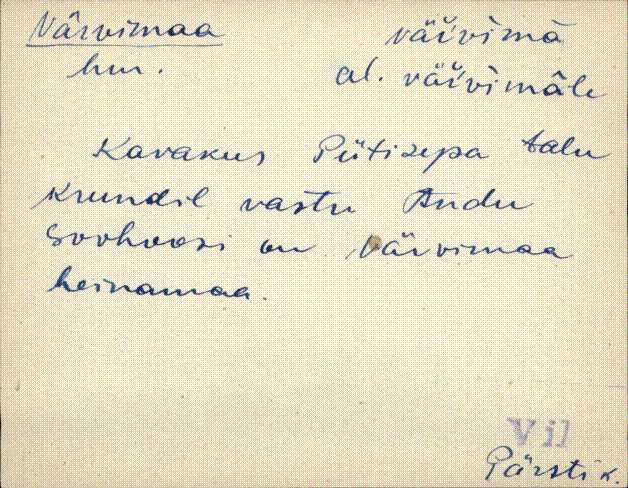 Värvimaa
hm.
väřvimà
al. väřvimàle
Kavakus Pütisepa talu
krundil vastu Andu
Soohoosi on Värvimaa
heinamaa.
Vil
Pärsti k.